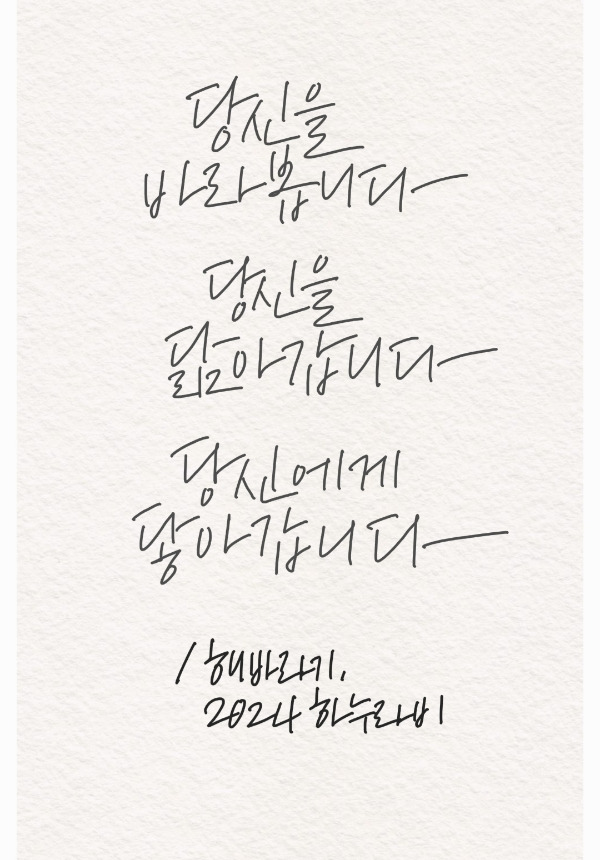 당신을
바라봅니다
당신을
닮아갑니다
당신에게
닿아갑니다
/ 해바라기,
2024 하누라비